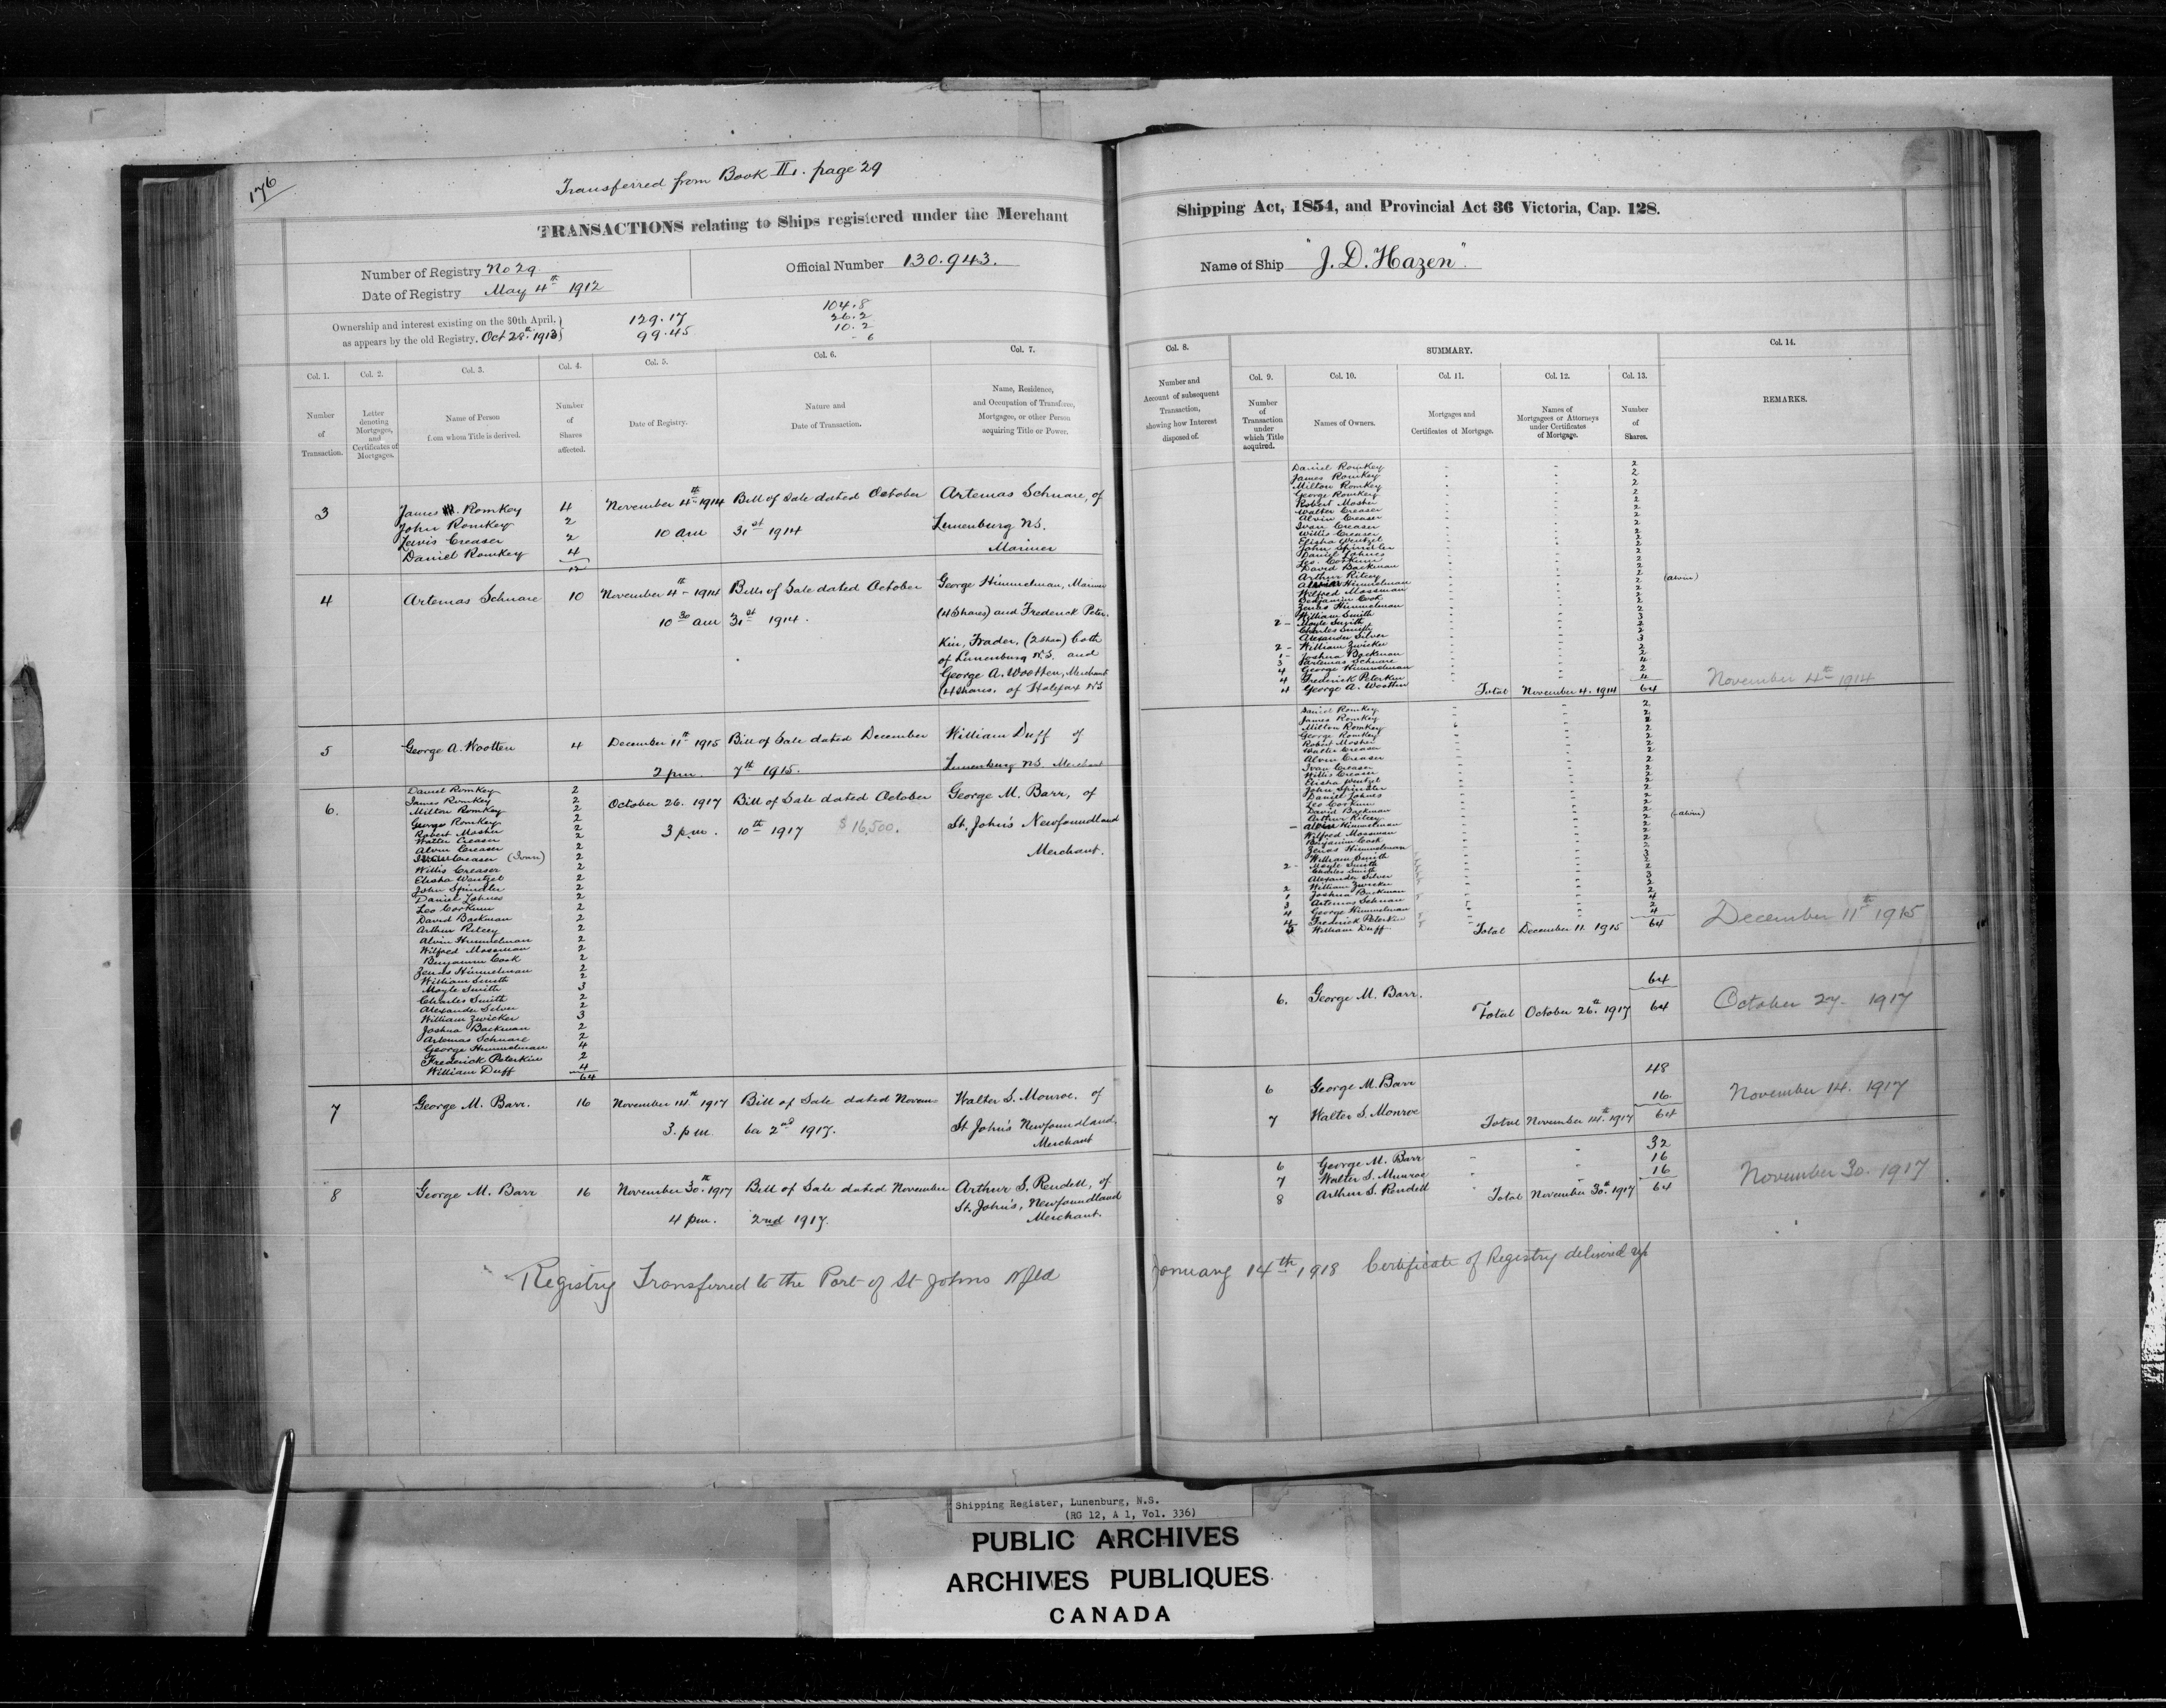 176
Transferred from Book II. page 29
TRANSACTIONS relating to Ships registered under the Merchant
Number of Registry No 29
Official Number 130.943.
Date of Registry May 4th 1912
Ownership and interest existing on the 30th April,
as appears by the old Registry. Oct 28th 1913
129.17
99.45
104.8
26.2
10.2
6
Col. 1.
Col. 2.
Col. 3.
Col. 4.
Col. 5.
Col. 6.
Col. 7.
Number
of
Transaction.
Letter
denoting
Mortgages,
and
Certificates of
Mortgages.
Name of Person
from whom Title is derived.
Number
of
Shares
affected.
Date of Registry.
Nature and
Date of Transaction.
Name, Residence,
and Occupation of Transferee,
Mortgagee, or other Person
acquiring Title or Power.
3
James Romkey 4
John Romkey 2
Lewis Creaser 2
Daniel Romkey 4
12
November 4th 1914
10 am
Bill of Sale dated October
31st 1914
Artemas Schnare, of
Lunenburg NS.
Mariner
4
Artemas Schnare 10
November 4th 1914
10 30 am
Bills of Sale dated October
31st 1914.
George Himmelman, Mariner
(4 Shares) and Frederick Peter-
kin, Trader, (2 Shares) both
of Lunenburg N.S. and
George A. Wootten, Merchant
(4 Shares. of Halifax NS
5
George A. Wootten 4
December 11th 1915
2 pm.
Bill of Sale dated December
7th 1915.
William Duff of
Lunenburg NS. Merchant
6.
Daniel Romkey 2
James Romkey 2
Milton Romkey 2
George Romkey 2
Robert Mosher 2
Walter Creaser 2
Alvin Creaser 2
Creaser (Ivan) 2
Willis Creaser 2
Elisha Wentzel 2
John Spindler 2
Daniel Lohnes 2
Leo Corkum 2
David Backman 2
Arthur Ritcey 2
Alvin Himmelman 2
Wilfred Mossman 2
Benjamin Cook 2
Zenas Himmelman 2
William Smith 2
Moyle Smith 3
Charles Smith 2
Alexander Silver 2
William Zwicker 3
Joshua Backman 2
Artemas Schnare 2
George Himmelman 4
Frederick Peterkin 2
William Duff 4
64
October 26. 1917
3 pm.
Bill of Sale dated October
10th 1917 $16,500.
George M. Barr, of
St. John's Newfoundland
Merchant.
7
George M. Barr. 16
November 14th 1917
3. pm
Bill of Sale dated Novem-
ber 2nd 1917.
Walter S. Monroe. of
St John's Newfoundland.
Merchant
8
George M. Barr 16
November 30th 1917
4 pm.
Bill of Sale dated November
2nd 1917.
Arthur S. Rendell, of
St. John's, Newfoundland
Merchant.
Registry Transferred to the Port of St Johns Nfld
Shipping Act, 1854, and Provincial Act 36 Victoria, Cap. 128.
Name of Ship "J. D. Hazen".
Col. 8.
SUMMARY.
Col. 14.
Number and
Account of subsequent
Transaction,
showing how Interest
disposed of.
Col. 9.
Col. 10.
Col. 11.
Col. 12.
Col. 13.
Number
of
Transaction
under
which Title
acquired.
Names of Owners.
Mortgages and
Certificates of Mortgage.
Names of
Mortgagees or Attorneys
under Certificates
of Mortgage.
Number
of
Shares.
REMARKS.
Daniel Romkey 2
James Romkey 2
Milton Romkey 2
George Romkey 2
Robert Mosher 2
Walter Creaser 2
Alvin Creaser 2
Ivan Creaser 2
Willis Creaser 2
Elisha Wentzel 2
John Spindler 2
Daniel Lohnes 2
Leo. Corkum 2
David Backman 2
Arthur Ritcey 2
Himmelman 2 (Alvin)
Wilfred Mossman 2
Benjamin Cook 2
Zenas Himmelman 2
William Smith 2
2 - Moyle Smith 3
Charles Smith 2
Alexander Silver 2
2 - William Zwicker 3
1 - Joshua Backman 2
3 Artemas Schnare 2
4 George Himmelman 4
4 Frederick Peterkin 2
4 George A. Wootten 4
Total November 4. 1914 64
November 4th 1914
Daniel Romkey 2
James Romkey 2
Milton Romkey 2
George Romkey 2
Robert Mosher 2
Walter Creaser 2
Alvin Creaser 2
Ivan Creaser 2
Willis Creaser 2
Elisha Wentzel 2
John Spindler 2
Daniel Lohnes 2
Leo Corkum 2
David Backman 2
Arthur Ritcey 2
Himmelman 2 (Alvin)
Wilfred Mossman 2
Benjamin Cook 2
Zenas Himmelman 2
William Smith 2
2 - Moyle Smith 3
Charles Smith 2
Alexander Silver 2
2 William Zwicker 3
1 Joshua Backman 2
3 Artemas Schnare 2
4 George Himmelman 4
4 Frederick Peterkin 2
5 William Duff 4
Total December 11 1915 64
December 11th 1915
6. George M. Barr. 64
Total October 26th 1917 64
October 27. 1917
6 George M. Barr 48
7 Walter S. Monroe 16
Total November 14th 1917 64
November 14. 1917
6 George M. Barr 32
7 Walter S. Munroe 16
8 Arthur S. Rendell 16
Total November 30th 1917 64
November 30. 1917
January 14th 1918 Certificate of Registry delivered up
Shipping Register, Lunenburg, N.S.
(RG 12, A 1, Vol. 336)
PUBLIC ARCHIVES
ARCHIVES PUBLIQUES
CANADA